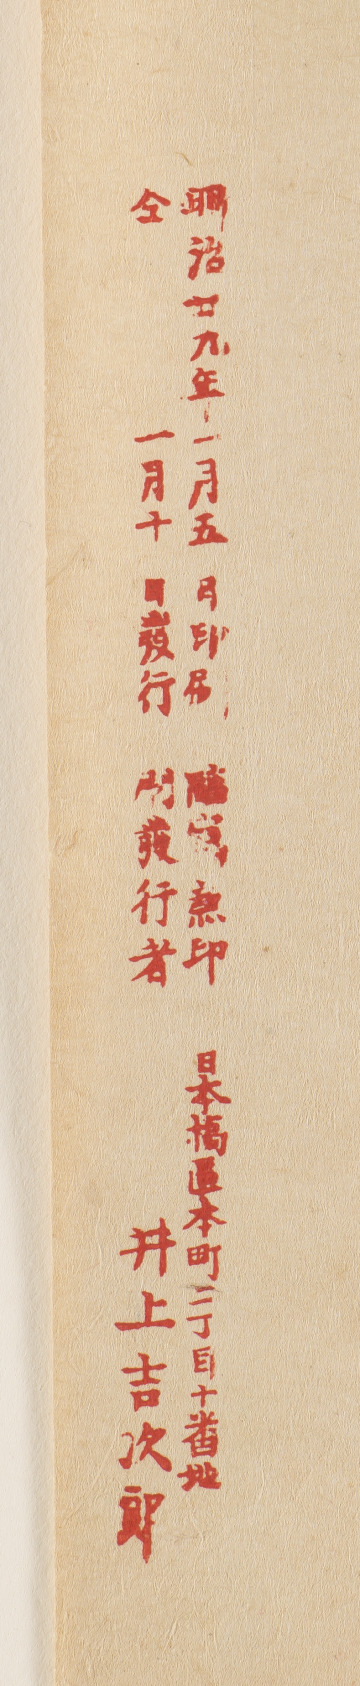 明治廿九年一月五日印刷 臨寫兼印 日本橋區本町二丁目十番地
仝 一月十日發行 刷發行者 井上吉次郎